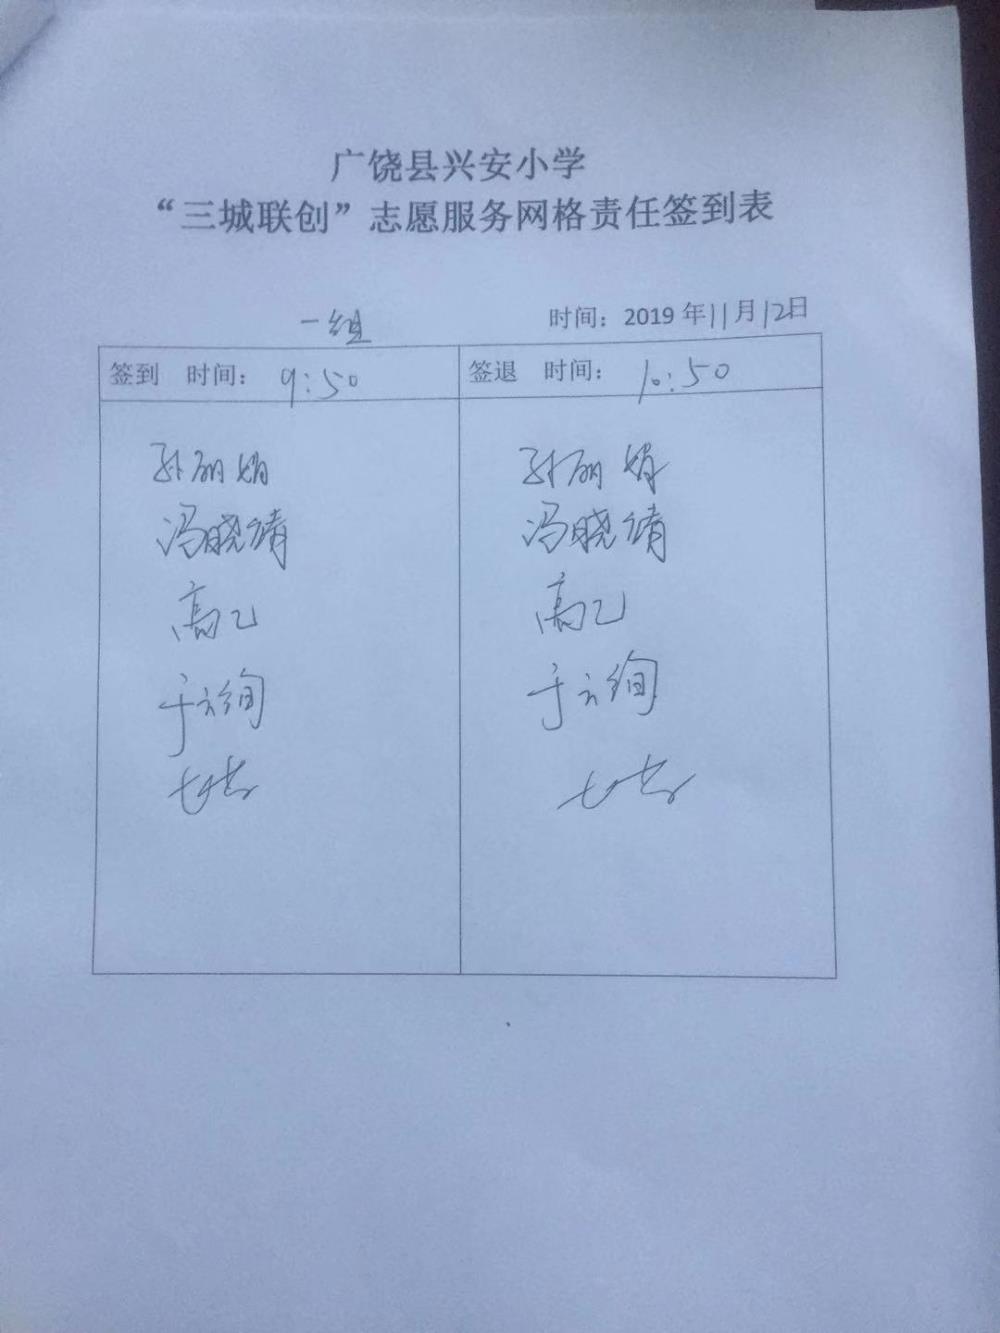 广饶县兴安小学
“三城联创”志愿服务网格责任签到表
一组 时间：2019年11月12日
签到 时间： 9:50 签退 时间： 10:50
孙丽娟 孙丽娟
冯晓倩 冯晓倩
高乙 高乙
于云绚 于云绚